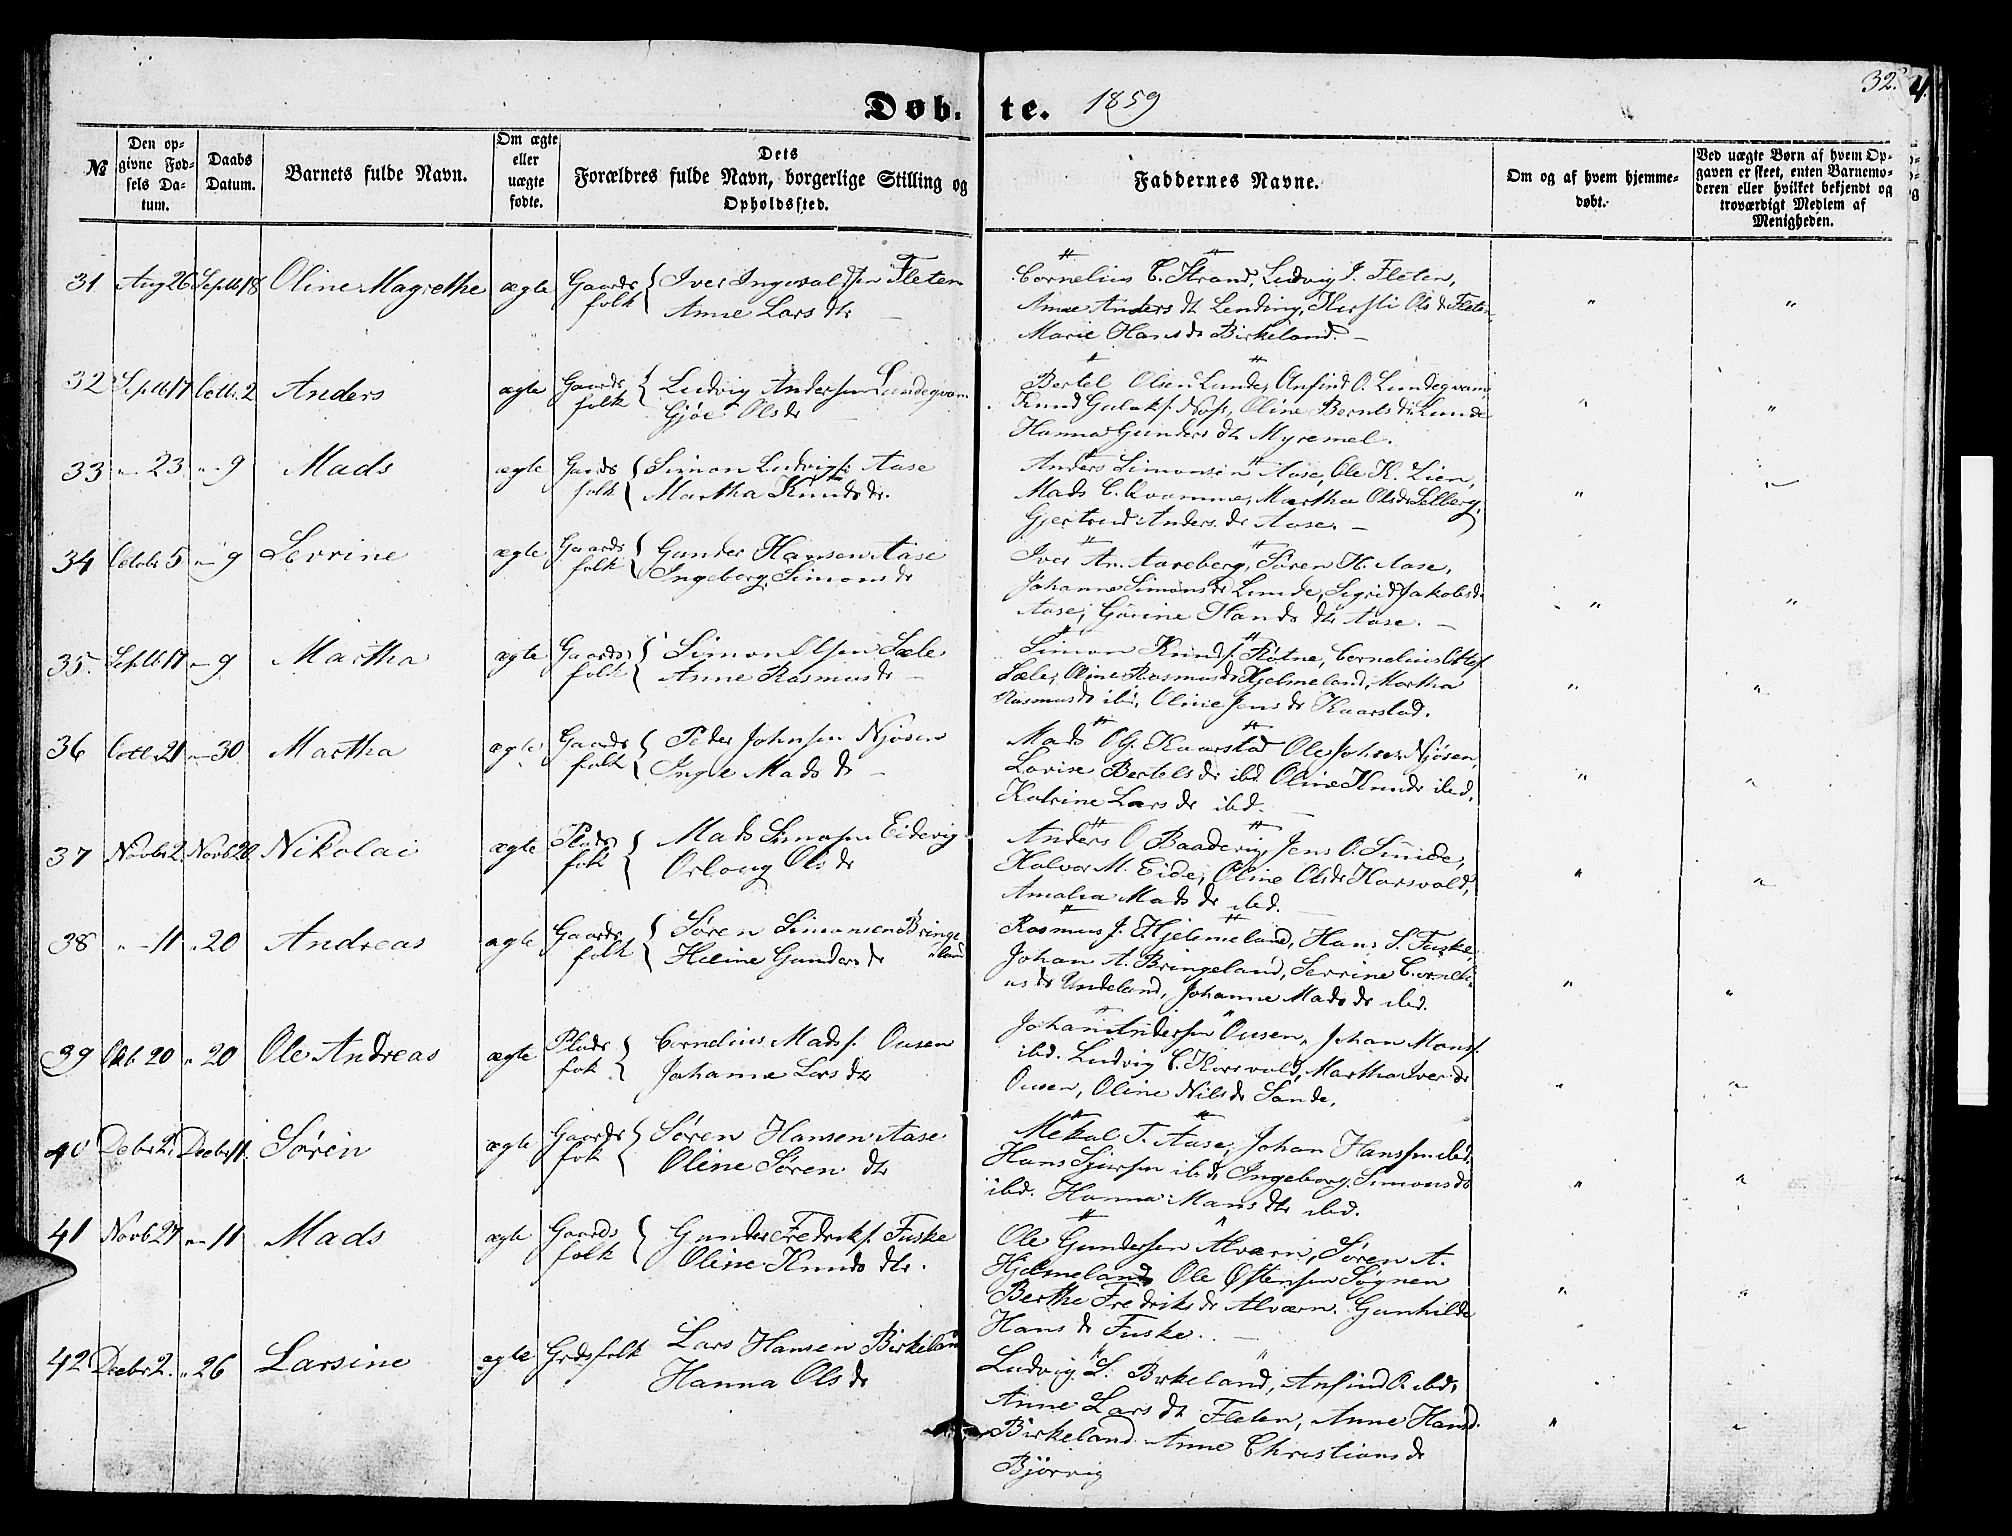 Døb-te. 1859
32.
4.
No
Den opgivne Fødsels Datum.
Daabs Datum.
Barnets fulde Navn.
Om ægte eller uægte fødte.
Dets Forældres fulde Navn, borgerlige Stilling og Opholdssted.
Faddernes Navne.
Om og af hvem hjemmedøbt.
Ved uægte Børn af hvem Opgaven er skeet, enten Barnemoderen eller hvilket bekjendt og troværdigt Medlem af Menigheden.
31 Aug 26 Septb 18 Oline Magrethe ægte Gaardsfolk Iver Ingvaldsen Fleten
Anne Lars dtr
Cornelius C. Strand, Ludvig J. Fleten,
Anne Anders dtr Lending, Kirsti Ols dr Fleten
Marie Hans dr Birkeland.
32 Septb 17 Octb. 2 Anders ægte Gaardsfolk Ludvig Andersen Lundeqvam
Gjøe Ols dr
Bertel Olsen Lunde, Anfind O. Lundeqvam
Knud Gulaks. Noss, Oline Bernts dr Lunde
Hanna Gunders dtr Myremel.
33 " 23 " 9 Mads ægte Gards folk Simon Ludvigs. Aase
Martha Knuds dr.
Anders Simonsen Aase, Ole K. Lien,
Mads C. Qvamme, Martha Ols dr Solberg,
Gjertrud Anders dr Aase.
34 Octobr 5 " 9 Serrine ægte Gaards folk Gunder Hansen Aase
Ingeborg Simons dr
Iver An. Aareberg, Søren H. Aase,
Johanne Simons dr Lunde, Sigrid Jakobs dr
Aase, Gurine Hans dtr Aase.
35. Septb 17 " 9 Martha ægte Gaards folk Simon Olsen Sæle
Anne Rasmus dr
Simon Knuds. Røtne, Cornelius Ottes.
Sæle, Oline Rasmus dr Hjelmeland, Martha
Rasmus dr ibd, Oline Jens dr Kaarstad.
36 Octbr 21 " 30 Martha ægte Gaards folk Peder Johnsen Njøsen
Ingle Mads dr
Mads Ol. Kaarstad Ole Johns. Njøsen,
Lovise Bertels dr ibd. Oline Knuds dr ibd.
Katrine Lars dr ibd.
37 Novbr 2 Novb 20 Nikolai ægte Plads folk Mads Simonsen Eidevig
Orloug Ols dr
Anders O Baadevig, Jens O. Smide,
Halvor M. Eide, Oline Ols dr Horsvold,
Amalia Mads dr ibd.
38 " 11 " 20 Andreas ægte Gaards folk Søren Simonsen Bringeland
Heline Gunders dr
Rasmus J. Hjelmeland, Hans S. Fuske,
Johan A. Bringeland, Serrine Corneli-
us dr Undeland, Johanne Mads dr ibd.
39 Okb 20 " 20 Ole Andreas ægte Plads folk Cornelius Mads. Ousen
Johanne Lars dtr
Johan Andersen Ousen, Johan Mons.
ibd. Ludvig C. Horsvold, Martha Iver dr
Ousen, Oline Nils dr Sande.
40 Decbr 2 Decbr 11. Søren ægte Gaards folk Søren Hansen Aase
Oline Søren dtr
Mekal T. Aase, Johan Hanssen ibd.
Hans Sjursen ibd, Ingeborg Simons dr
ibd. Hanna Mans dtr ibd.
41 Novb 27 " 11 Mads ægte Gaards folk Gunder Fredriks. Fuske
Oline Knuds dtr.
Ole Gundersen Alværn, Søren A.
Hjelmeland Ole Østensen Søgnen
Berthe Fredriks dr Alværn. Gunhilde
Hans dr Fuske.
42 Decbr 2. " 26 Larsine ægte Grdsfolk Lars Hansen Birkeland
Hanna Ols dr
Ludvig L. Birkeland, Anfind O. ibd,
Anne Lars dtr Fleten, Anne Hansd.
Birkeland Anne Christians dr
Bjørvig